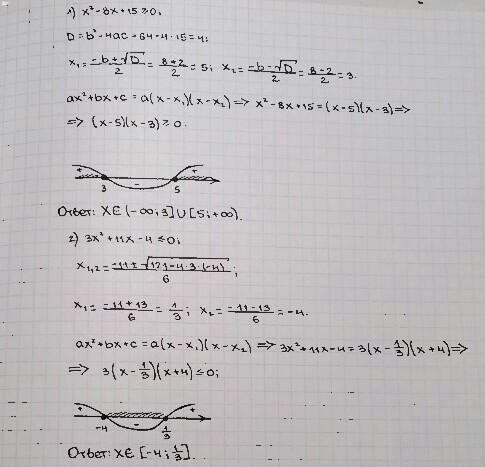 1) x² - 8x + 15 ≥ 0;
D = b² - 4ac = 64 - 4 · 15 = 4;
x₁ = (-b + √D)/2 = (8 + 2)/2 = 5; x₂ = (-b - √D)/2 = (8 - 2)/2 = 3.
ax² + bx + c = a(x - x₁)(x - x₂) => x² - 8x + 15 = (x - 5)(x - 3) =>
=> (x - 5)(x - 3) ≥ 0.
+ - +
3 5
Ответ: X ∈ (-∞; 3] ∪ [5; +∞).
2) 3x² + 11x - 4 ≤ 0;
x₁,₂ = (-11 ± √(121 - 4 · 3 · (-4)))/6;
x₁ = (-11 + 13)/6 = 1/3; x₂ = (-11 - 13)/6 = -4.
ax² + bx + c = a(x - x₁)(x - x₂) => 3x² + 11x - 4 = 3(x - 1/3)(x + 4) =>
=> 3(x - 1/3)(x + 4) ≤ 0;
+ - +
-4 1/3
Ответ: X ∈ [-4; 1/3].